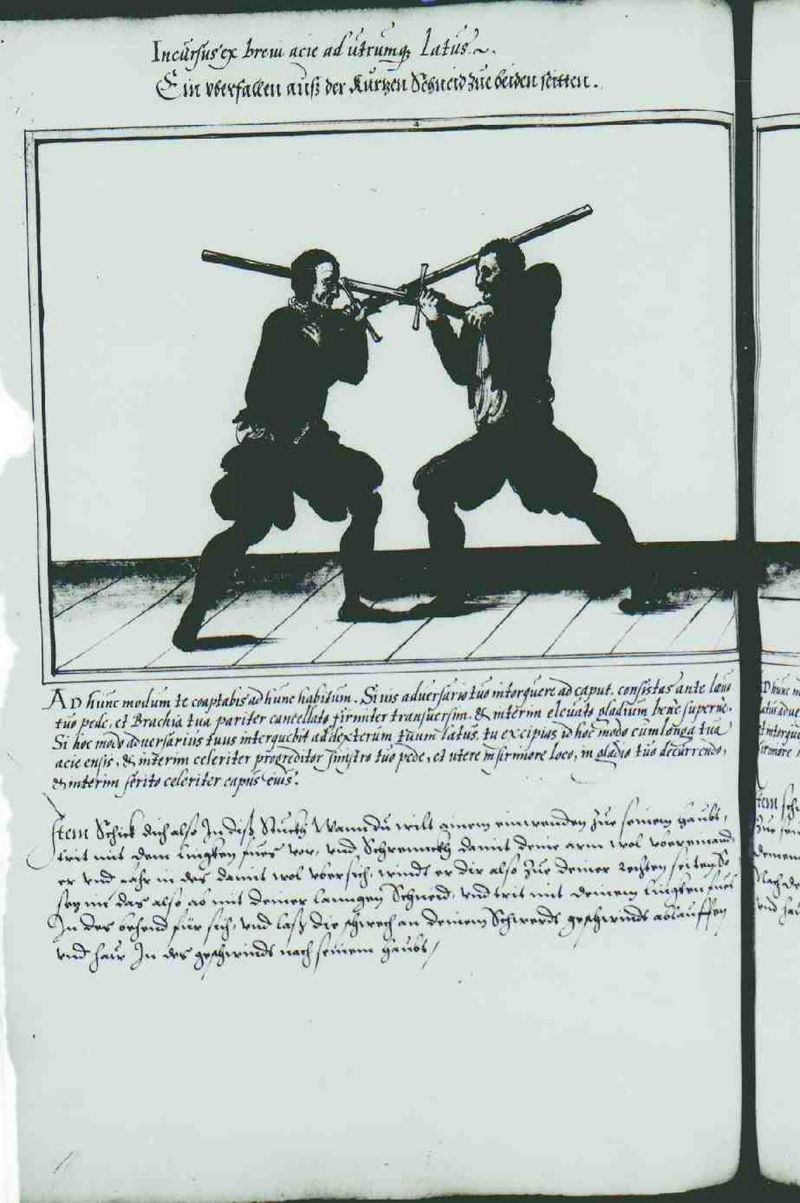 Incursus ex brevi acie ad utrumq; latus ~.
Ein vberfallen auß der Kurtzen Schneid zue beiden seitten.
AD hunc modum te coaptabis ad hunc habitum. Si uis adversario tuo intorquere ad caput, consistas ante laeuo
tuo pede, et Brachia tua pariter cancellato firmiter transuersim, & interim eleuato gladium bene superne.
Si hoc modo adversarius tuus intorquebit ad dexterum tuum latus, tu excipias id hoc modo cum longa tua
acie ensis, & interim celeriter progreditor sinistro tuo pede, et utere infirmiore loco, in gladio tuo decurrendo,
& interim ferito celeriter caput eius.
Item Schick dich also In diß Stuckh Wann du wilt ainem einwenden zue seinem haubt,
trit mit dem lingken fues vor, und Schrennckh damit deine arm wol vberainand
er vnd far in des damit wol vbersich, windt er dir also zue deiner rechten seiten So
im das also ab mit deiner lanngen Schneid, vnd trit mit deinem lingken fues
In des behend für sich, vnd laß die schwech an deinem Schwerdt geschwindt ablauffen
vnd haw In des geschwindt nach seinem haubt /
AD hunc